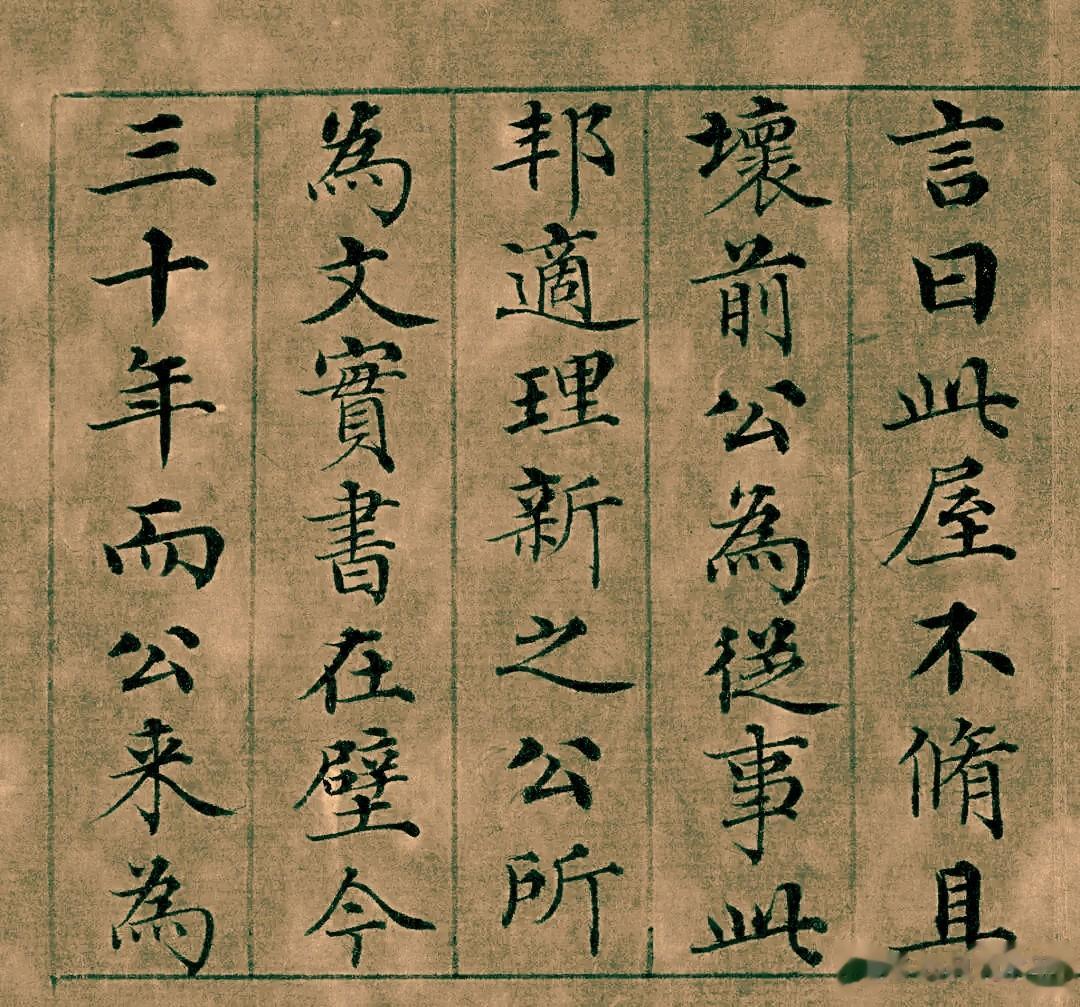 言曰此屋不脩且
壞前公為從事此
邦適理新之公所
為文實書在壁今
三十年而公来為